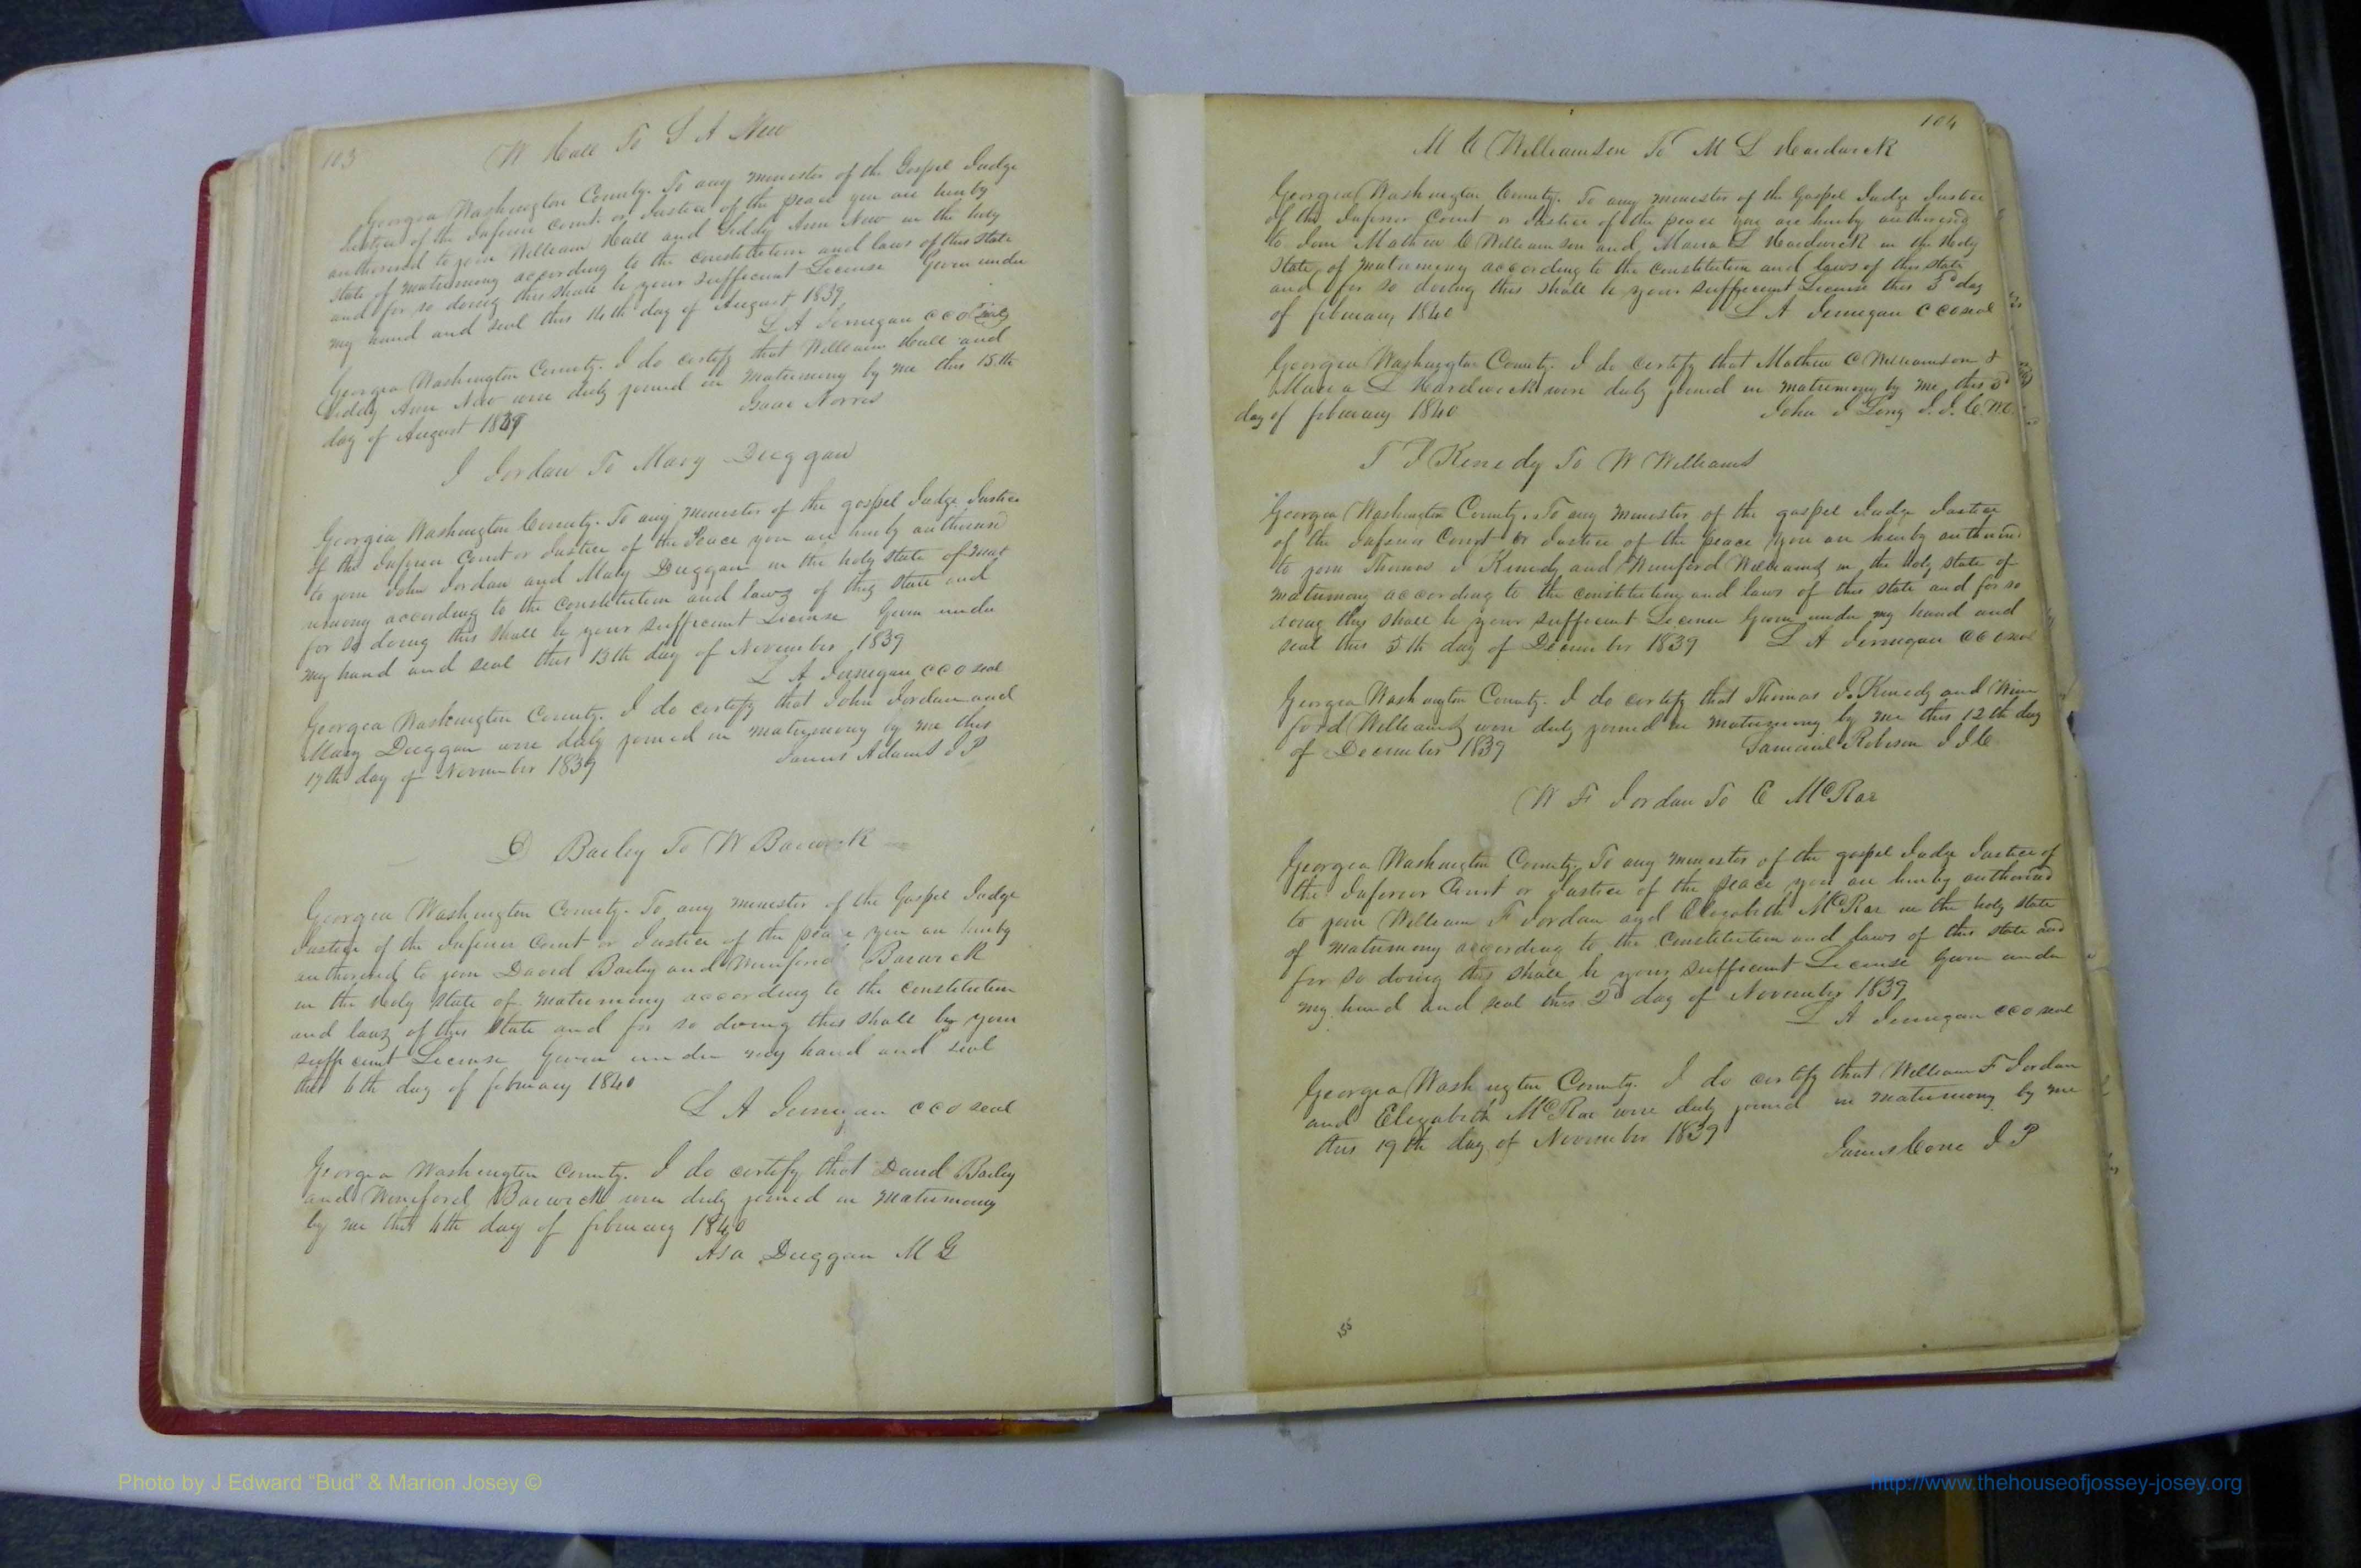 103
W Hall To L A New
Georgia Washington County. To any minister of the Gospel Judge
Justice of the Inferior Court or Justice of the peace you are hereby
authorised to join William Hall and Liddy Ann New in the holy
state of matrimony according to the constitution and laws of this state
and for so doing this shall be your sufficient License Given under
my hand and seal this 14th day of August 1839
L A Jernigan CCO seal
Georgia Washington County. I do certify that William Hall and
Liddy Ann New were duly joined in matrimony by me this 15th
day of August 1839
Isaac Norris
J Jordan To Mary Duggan
Georgia Washington County. To any minister of the gospel Judge Justice
of the Inferior Court or Justice of the Peace you are hereby authorised
to join John Jordan and Mary Duggan in the holy state of mat
rimony according to the constitution and laws of this state and
for so doing this shall be your sufficient License Given under
my hand and seal this 13th day of November 1839
L A Jernigan CCO seal
Georgia Washington County. I do certify that John Jordan and
Mary Duggan were duly joined in matrimony by me this
17th day of November 1839
James Adams J P
D Bailey To W Barwick
Georgia Washington County. To any minister of the Gospel Judge
Justice of the Inferior Court or Justice of the peace you are hereby
authorised to join David Bailey and Winiford Barwick
in the Holy state of matrimony according to the constitution
and laws of this state and for so doing this shall be your
sufficient License Given under my hand and seal
this 4th day of february 1840
L A Jernigan CCO seal
Georgia Washington County. I do certify that David Bailey
and Winiford Barwick were duly joined in matrimony
by me this 4th day of february 1840
Asa Duggan M G
104
M C Williamson To M L Hardwick
Georgia Washington County. To any minister of the Gospel Judge Justice
of the Inferior Court or Justice of the peace you are hereby authorised
to join Mathew C Williamson and Maria L Hardwick in the Holy
State of matrimony according to the constitution and laws of this state
and for so doing this shall be your sufficient License this 3d day
of february 1840
L A Jernigan CCO seal
Georgia Washington County. I do certify that Mathew C Williamson &
Maria L Hardwick were duly joined in matrimony by me this 3d
day of february 1840
John J Long J. I. C. W.C.
T J Kenedy To W Williams
Georgia Washington County. To any minister of the gospel Judge Justice
of the Inferior Court or Justice of the peace you are hereby authorised
to join Thomas J Kenedy and Winiford Williams in the Holy state of
matrimony according to the constitution and laws of this state and for so
doing this shall be your sufficient License Given under my hand and
seal this 5th day of December 1839 L A Jernigan CCO seal
Georgia Washington County. I do certify that Thomas J. Kenedy and Wini
ford Williams were duly joined in matrimony by me this 12th day
of December 1839
Samauel Robison J I C
W F Jordan To E McRae
Georgia Washington County. To any minister of the gospel Judge Justice of
the Inferior Court or Justice of the peace you are hereby authorised
to join William F Jordan and Elizabeth McRae in the holy state
of matrimony according to the constitution and laws of this state and
for so doing this shall be your sufficient License Given under
my hand and seal this 2d day of November 1839
L A Jernigan CCO seal
Georgia Washington County. I do certify that William F Jordan
and Elizabeth McRae were duly joined in matrimony by me
this 19th day of November 1839
James Cone J P
Photo by J Edward “Bud” & Marion Josey ©
http://www.thehouseofjossey-josey.org